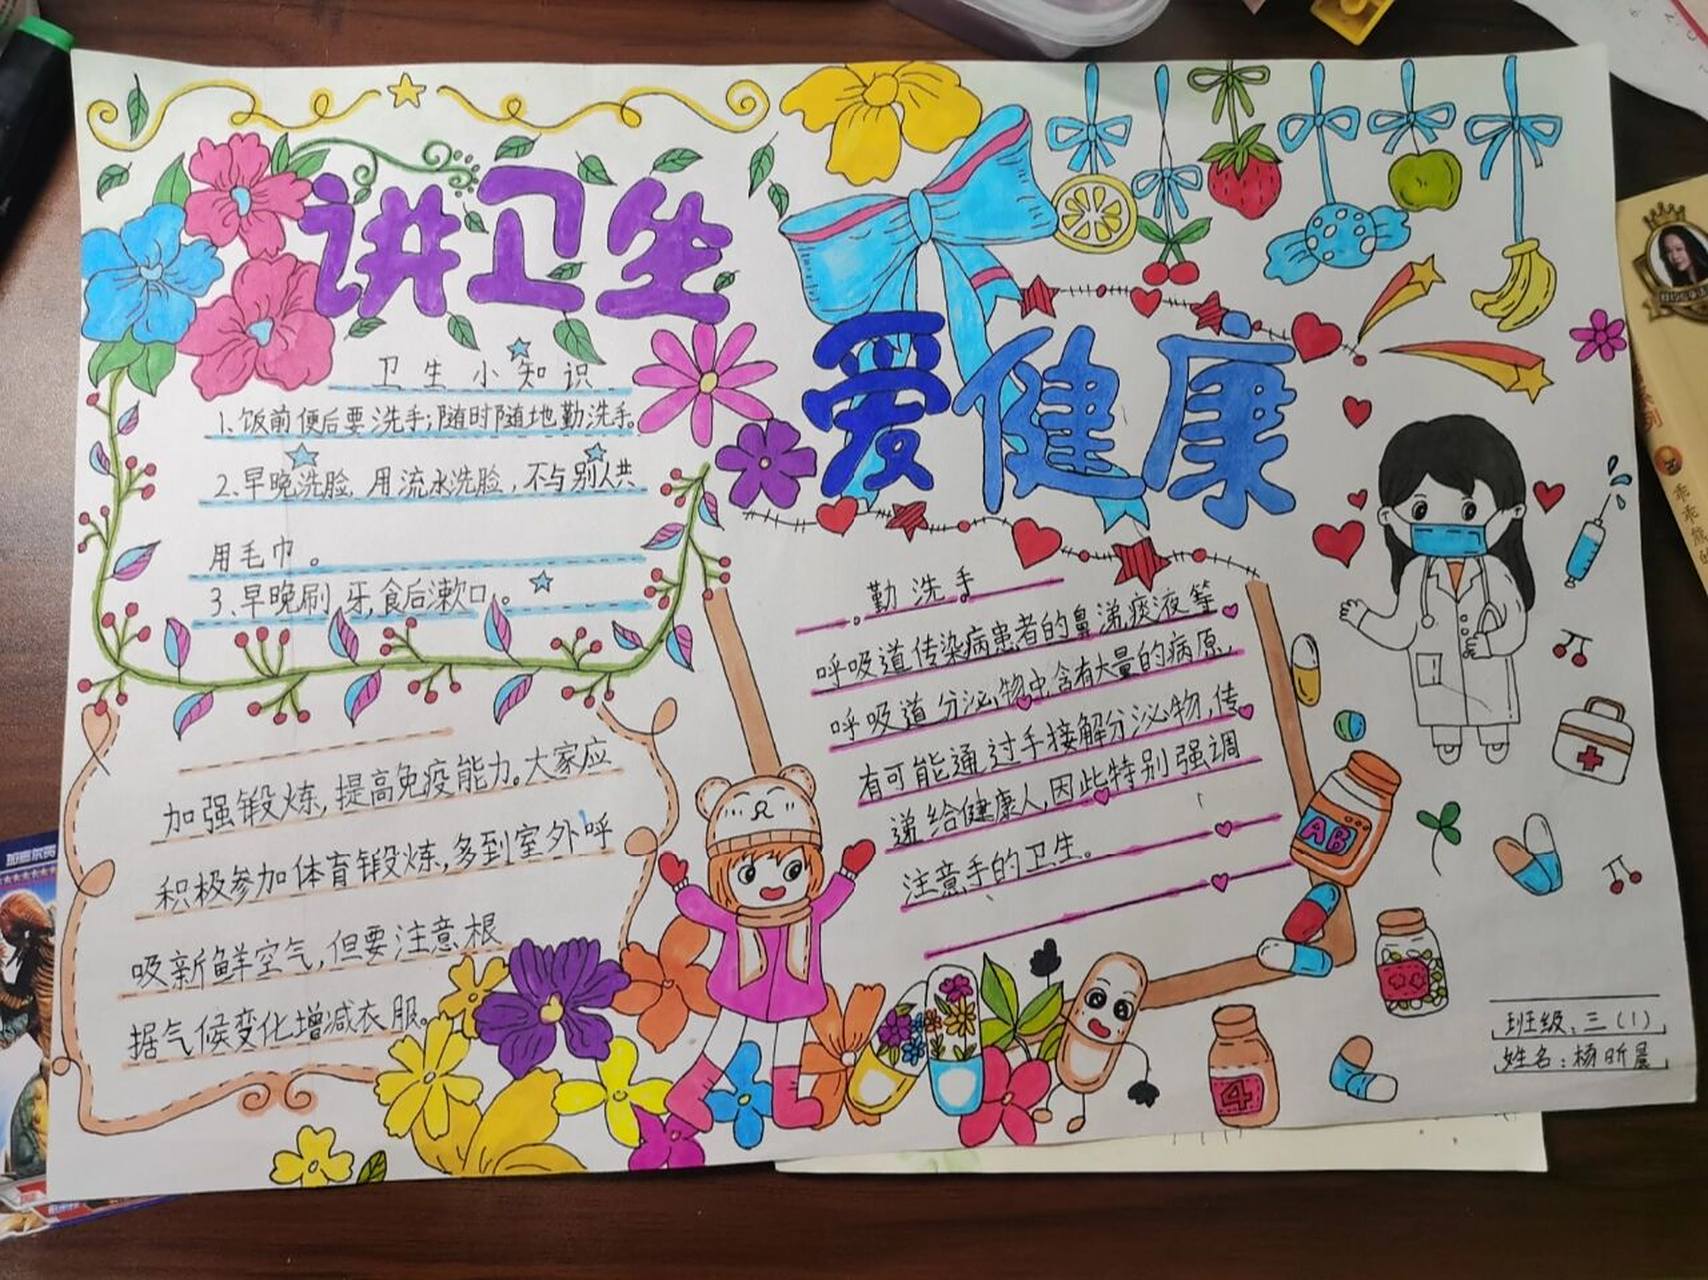 讲卫生
爱健康
卫生小知识
1、饭前便后要洗手;随时随地勤洗手。
2、早晚洗脸,用流水洗脸,不与别人共
用毛巾。
3、早晚刷牙,食后漱口。
加强锻炼,提高免疫能力。大家应
积极参加体育锻炼,多到室外呼
吸新鲜空气,但要注意根
据气候变化增减衣服。
勤洗手
呼吸道传染病患者的鼻涕痰液等
呼吸道分泌物中含有大量的病原,
有可能通过手接解分泌物,传
递给健康人,因此特别强调
注意手的卫生。
AB
4
班级:三(1)
姓名:杨昕晨
乖乖熊的